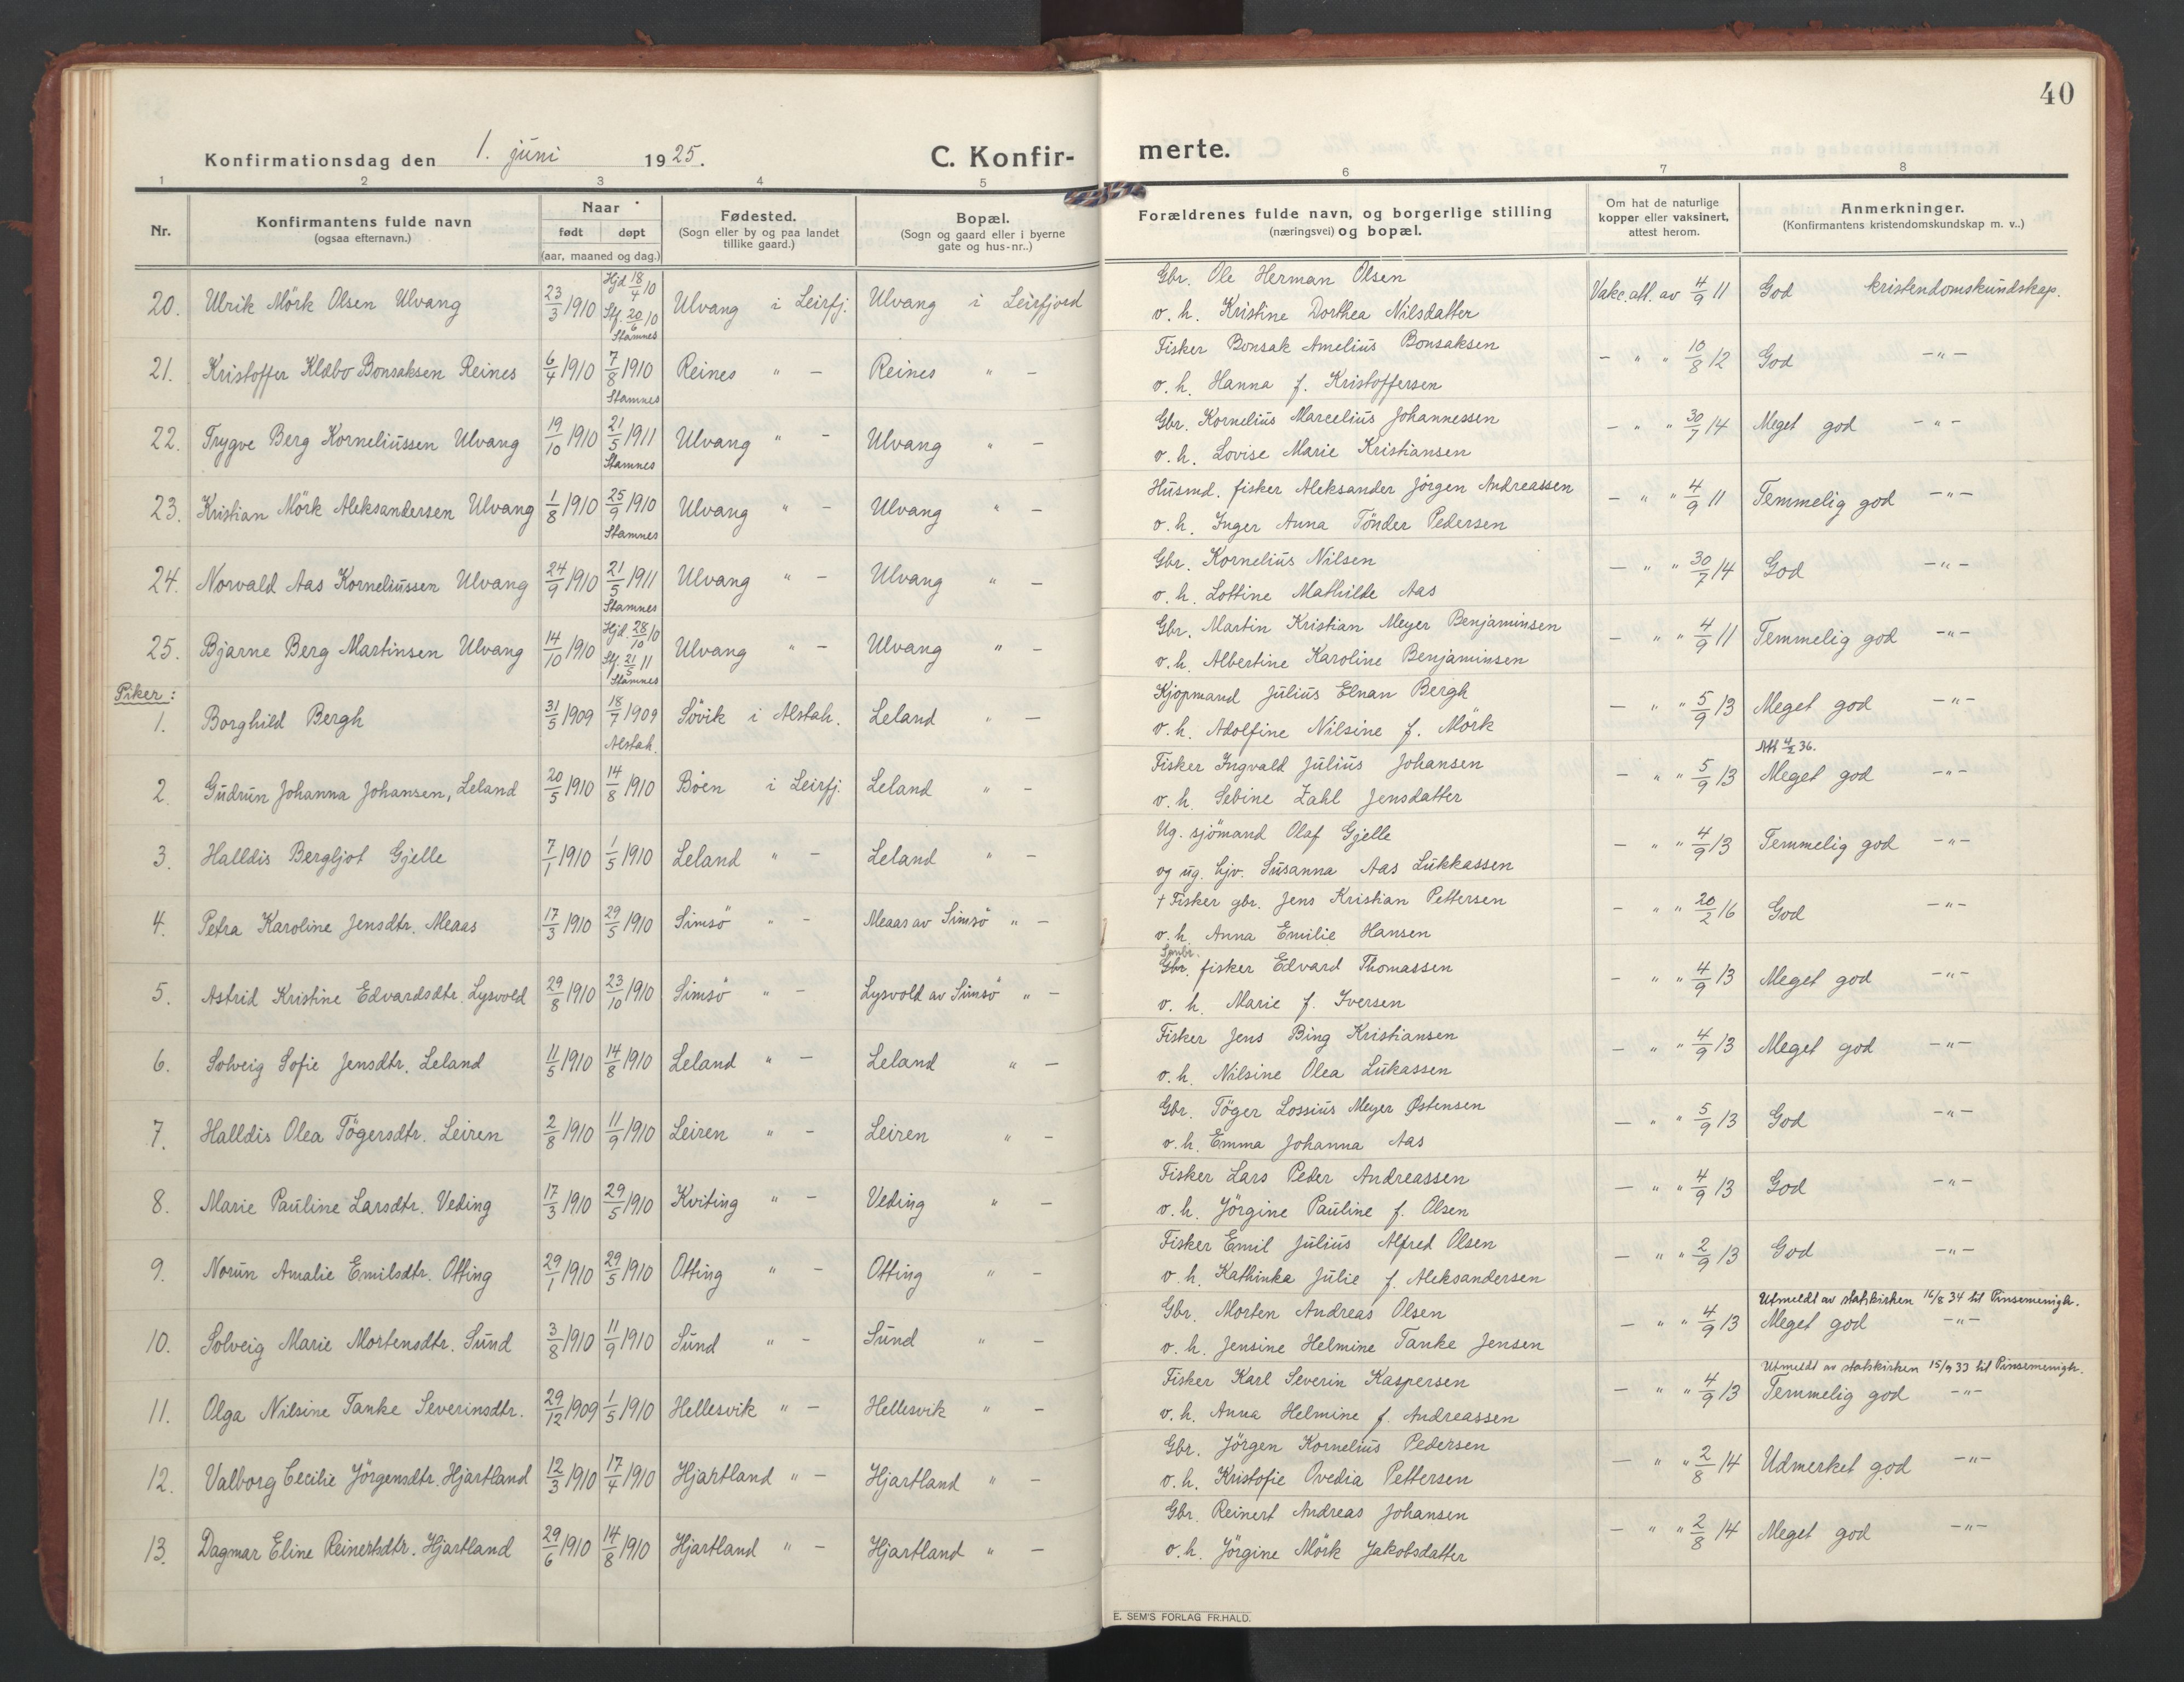 40
Konfirmationsdag den 1. juni 1925. C. Konfir- merte.
1 2 3 4 5 6 7 8
Nr. Konfirmantens fulde navn (ogsaa efternavn.) Naar født døpt (aar, maaned og dag.) Fødested. (Sogn eller by og paa landet tillike gaard.) Bopæl. (Sogn og gaard eller i byerne gate og hus-nr..) Forældrenes fulde navn, og borgerlige stilling (næringsvei) og bopæl. Om hat de naturlige kopper eller vaksinert, attest herom. Anmerkninger. (Konfirmantens kristendomskundskap m. v..)
20. Ulrik Mörk Olsen Ulvang 23/3 1910 Hjd 18/4 10 Stf. 20/6 10 Stamnes Ulvang i Leirfj. Ulvang i Leirfjord Gbr. Ole Herman Olsen o. h. Kristine Dorthea Nilsdatter Vakc. att. av 4/9 11 God kristendomskundskap.
21. Kristoffer Klæbo Bonsaksen Reines 6/4 1910 7/8 1910 Stamnes Reines " - Reines " - Fisker Bonsak Amelius Bonsaksen o. h. Hanna f. Kristoffersen - " " 10/8 12 God -"-
22. Trygve Berg Korneliussen Ulvang 19/10 1910 21/5 1911 Stamnes Ulvang " - Ulvang " - Gbr. Kornelius Marcelius Johannessen o. h. Lovise Marie Kristiansen - " " 30/7 14 Meget god -"-
23. Kristian Mörk Aleksandersen Ulvang 1/8 1910 25/9 1910 Stamnes Ulvang " - Ulvang " - Husmd. fisker Aleksander Jörgen Andreassen o. h. Inger Anna Tönder Pedersen - " " 4/9 11 Temmelig god -"-
24. Norvald Aas Korneliussen Ulvang 24/9 1910 21/5 1911 Stamnes Ulvang " - Ulvang " - Gbr. Kornelius Nilsen o. h. Lottine Mathilde Aas - " " 30/7 14 God -"-
25. Bjarne Berg Martinsen Ulvang 14/10 1910 Hjd. 28/10 10 Stf. 21/5 11 Stamnes Ulvang " - Ulvang " - Gbr. Martin Kristian Meyer Benjaminsen o. h. Albertine Karoline Benjaminsen - " " 4/9 11 Temmelig god -"-
Piker:
1. Borghild Bergh 31/5 1909 18/7 1909 Alstah. Sövik i Alstah. Leland " - Kjöpmand Julius Elnan Bergh o. h. Adolfine Nilsine f. Mörk - " " 5/9 13 Meget god -"-
2. Gudrun Johanna Johansen, Leland 20/5 1910 14/8 1910 Böen i Leirfj. Leland " - Fisker Ingvald Julius Johansen o. h. Sebine Zahl Jensdatter - " " 5/9 13 Meget god -"-
3. Halldis Bergljot Gjelle 7/1 1910 1/5 1910 Leland " - Leland " - Ug. sjömand Olaf Gjelle og ug. tjv. Susanna Aas Lukkassen - " " 4/9 13 Temmelig god -"-
4. Petra Karoline Jensdtr. Meaas 17/3 1910 29/5 1910 Simsö " - Meaas av Simsö " - † Fisker gbr. Jens Kristian Pettersen o. h. Anna Emilie Hansen - " " 20/2 16 God -"-
5. Astrid Kristine Edvardsdtr. Lysvold 29/8 1910 23/10 1910 Simsö " - Lysvold av Simsö " - Gbr. fisker Edvard Thomassen o. h. Marie f. Iversen - " " 4/9 13 Meget god -"-
6. Solveig Sofie Jensdtr. Leland 11/5 1910 14/8 1910 Leland " - Leland " - Fisker Jens Bing Kristiansen o. h. Nilsine Olea Lukassen - " " 4/9 13 Meget god -"-
7. Halldis Olea Tögersdtr. Leiren 2/8 1910 11/9 1910 Leiren " - Leiren " - Gbr. Töger Lossius Meyer Østensen o. h. Emma Johanna Aas - " " 5/9 13 God -"-
8. Marie Pauline Larsdtr. Veding 17/3 1910 29/5 1910 Kviting " - Veding " - Fisker Lars Peder Andreassen o. h. Jörgine Pauline f. Olsen - " " 4/9 13 God -"-
9. Norun Amalie Emilsdtr. Otting 29/1 1910 29/5 1910 Otting " - Otting " - Fisker Emil Julius Alfred Olsen o. h. Kathinka Julie f. Aleksandersen - " " 2/9 13 God -"-
10. Solveig Marie Mortensdtr. Sund 3/8 1910 11/9 1910 Sund " - Sund " - Gbr. Morten Andreas Olsen o. h. Jensine Helmine Tanke Jensen - " " 4/9 13 Utmeldt av statskirken 16/8 34 til Pinsemenigh. Meget god -"-
11. Olga Nilsine Tanke Severinsdtr. 29/12 1909 1/5 1910 Hellesvik " - Hellesvik " - Fisker Karl Severin Kaspersen o. h. Anna Helmine f. Andreassen - " " 4/9 13 Utmeldt av statskirken 15/9 33 til Pinsemenigh. Temmelig god -"-
12. Valborg Cecilie Jörgensdtr. Hjartland 12/3 1910 17/4 1910 Hjartland " - Hjartland " - Gbr. Jörgen Kornelius Pedersen o. h. Kristofie Ovedia Pettersen - " " 2/8 14 Udmerket god -"-
13. Dagmar Eline Reinertsdtr. Hjartland 29/6 1910 14/8 1910 Hjartland " - Hjartland " - Gbr. Reinert Andreas Johansen o. h. Jörgine Mörk Jakobsdatter - " " 2/8 14 Meget god -"-
E. SEM'S FORLAG FR.HALD.